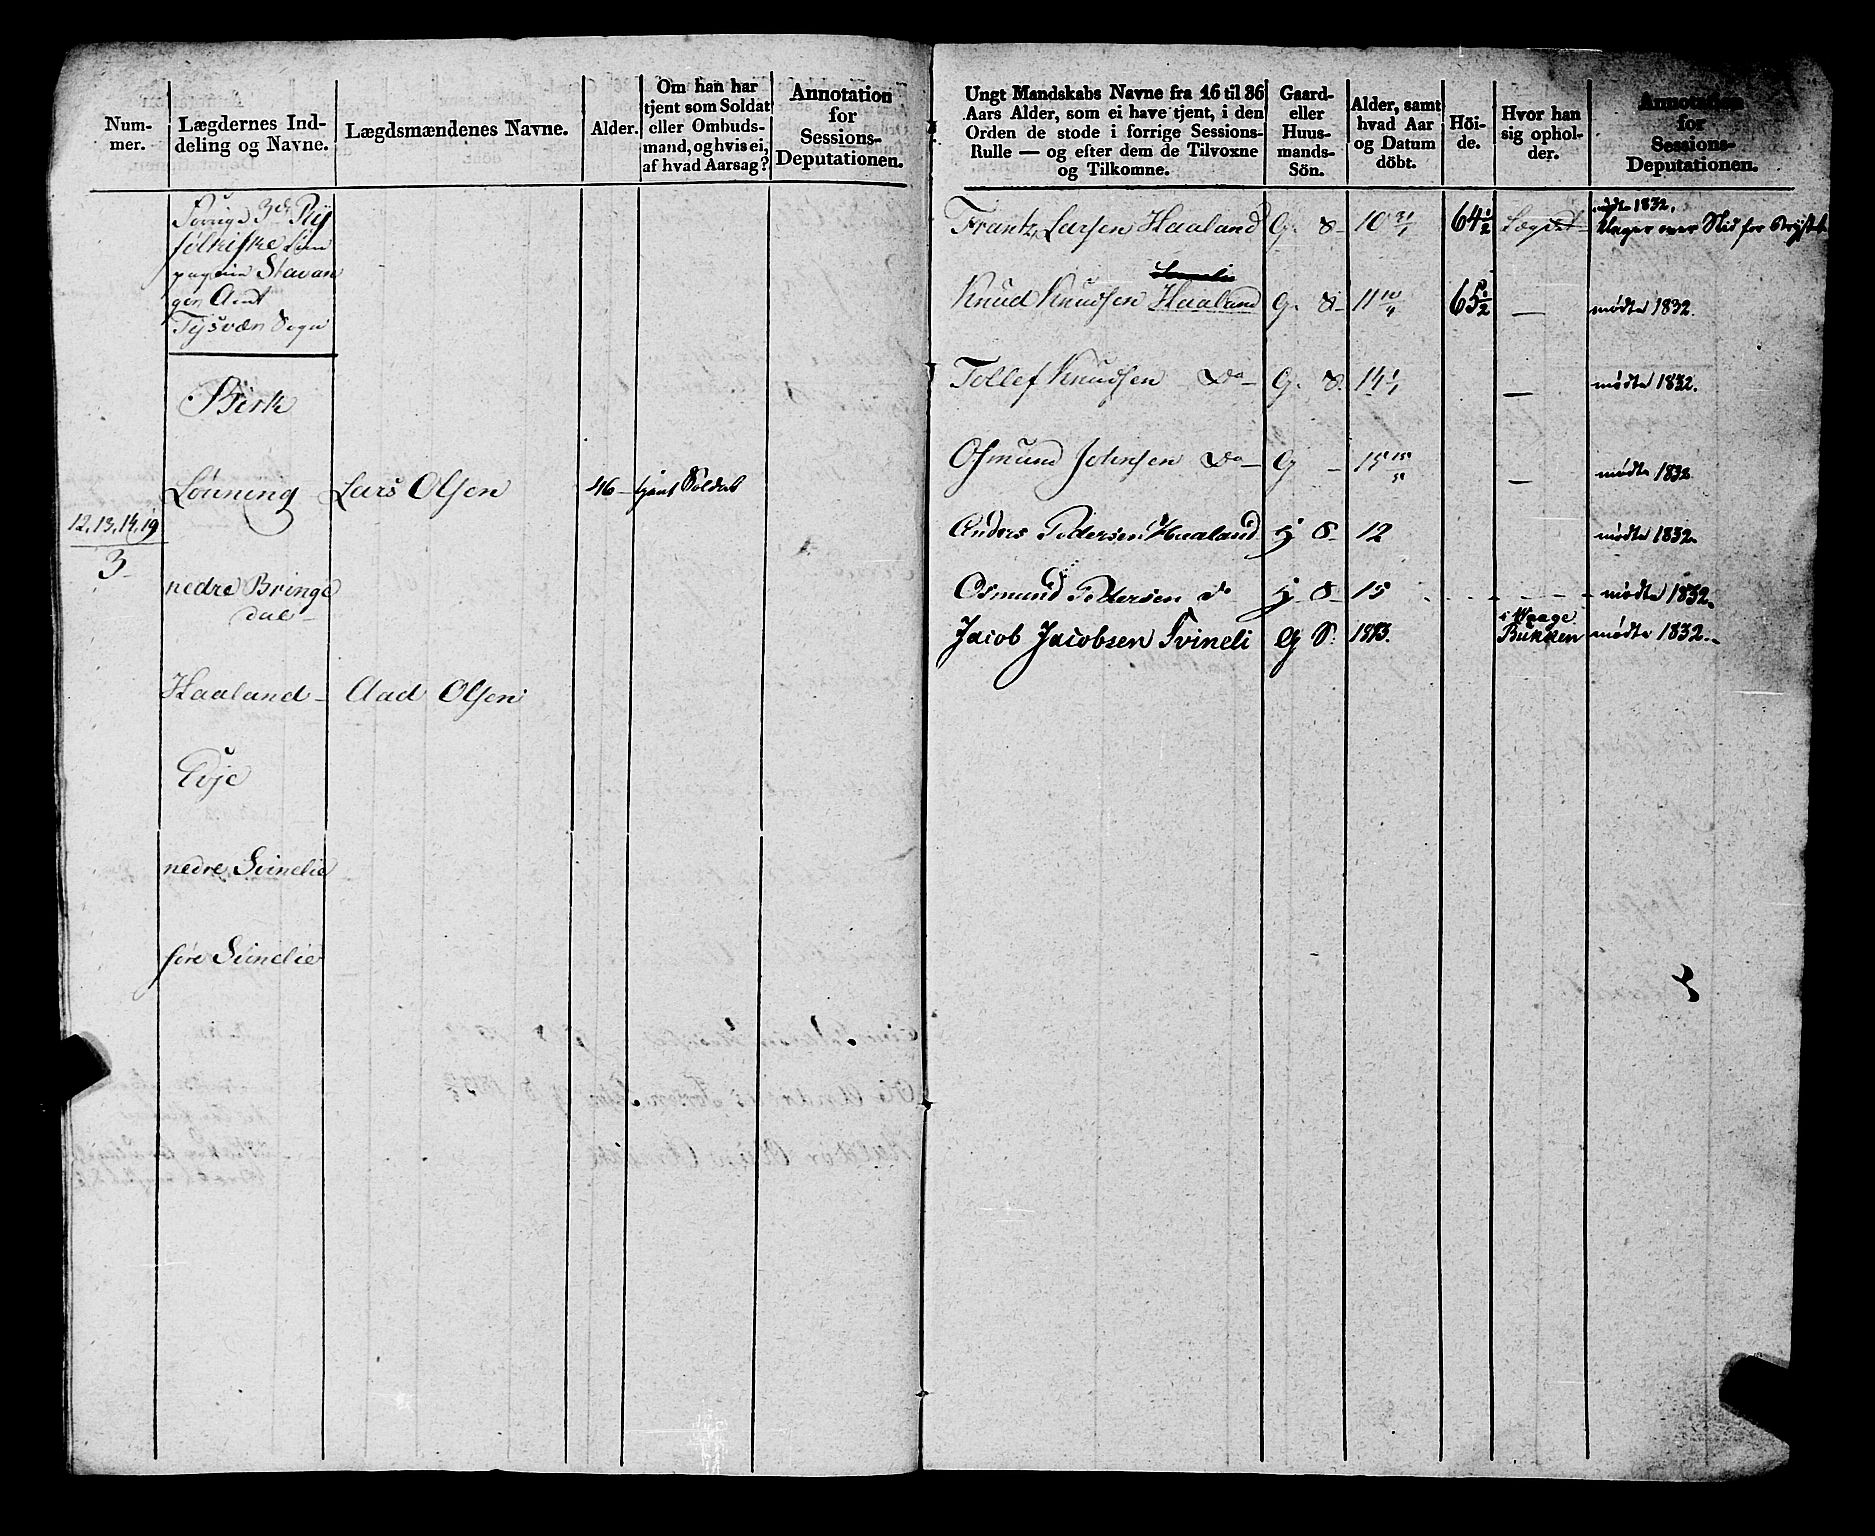 Num-
mer.
Lægdernes Ind-
deling og Navne.
Lægdsmændenes Navne.
Alder.
Om han har
tjent som Soldat
eller Ombuds-
mand, og hvis ei,
af hvad Aarsag?
Annotation
for
Sessions-
Deputationen.
Forrige 3de Ry
fölkiske Com
pagnie Stavan
ger Amt
Tysvær Sogn
Birk
Lönning Lars Olsen 46 - tjent Soldat
12.13.14.19
3
nedre Bringe
dal
Haaland - Aad Olsen
Evje
nedre Svinelie
Svinelie
Ungt Mandskabs Navne fra 16 til 36
Aars Alder, som ei have tjent, i den
Orden de stode i forrige Sessions-
Rulle — og efter dem de Tilvoxne
og Tilkomne.
Gaard-
eller
Huus-
mands-
Sön.
Alder, samt
hvad Aar
og Datum
döbt.
Höi-
de.
Hvor han
sig ophol-
der.
Annotation
for
Sessions-
Deputationen.
mødte 1832.
Frantz Larsen Haaland G. S- 10 31/1 64½ Lægdet klager over Slid for Brystet
Svinelie
Knud Knudsen Haaland G. S- 11 10/4 65½ — mødte 1832.
Tollef Knudsen Do- G. S. 14 1/1 — mødte 1832.
Osmund Johnsen Do- G - 15 — mødte 1832
Anders Pedersen Haaland H S- 12 mødte 1832.
Osmund Pedersen do H S- 15 - - - - mødte 1832.
i Waage
Jacob Jacobsen Svineli G S. 1813. Bukken mødte 1832.